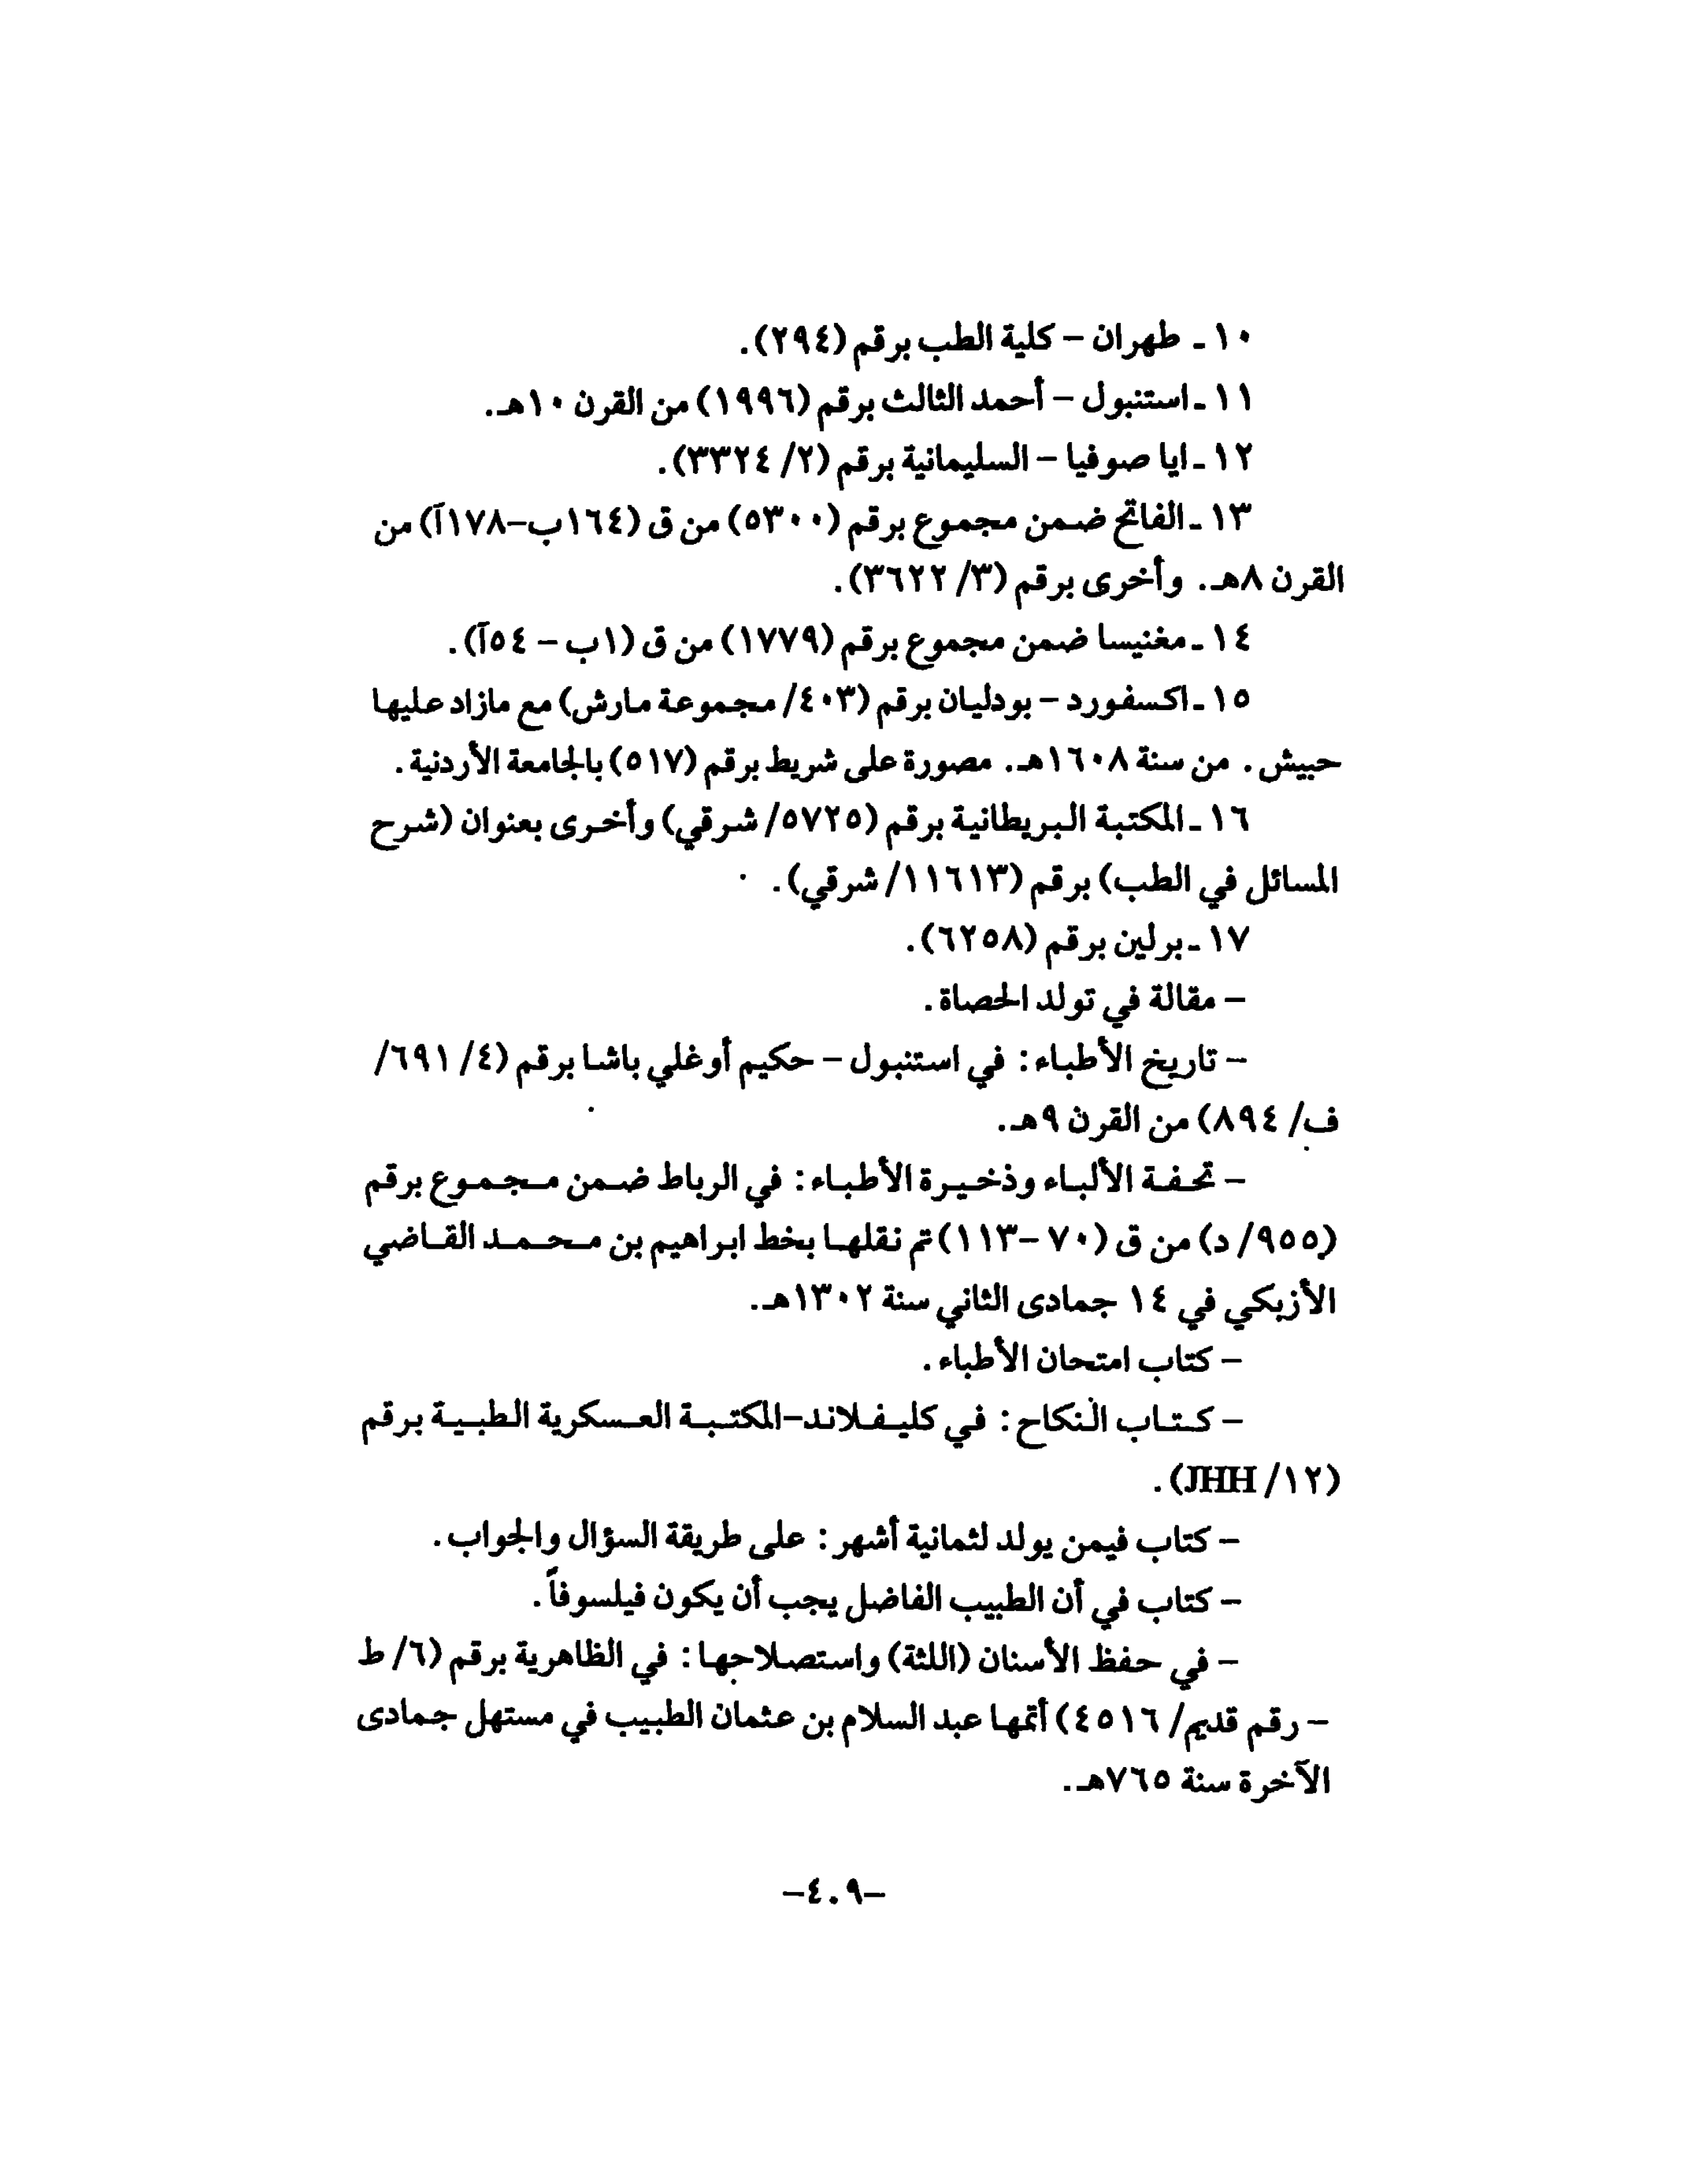 ١٠ ـ طهران – كلية الطب برقم (٢٩٤).
١١ ـ استنبول – أحمد الثالث برقم (١٩٩٦) من القرن ١٠هـ.
١٢ ـ ايا صوفيا – السليمانية برقم (٢/ ٣٣٢٤).
١٣ ـ الفاتح ضمن مجموع برقم (٥٣٠٠) من ق (١٦٤ب–١٧٨آ) من
القرن ٨هـ. وأخرى برقم (٣/ ٣٦٢٢).
١٤ ـ مغنيسا ضمن مجموع برقم (١٧٧٩) من ق (١ب – ٥٤آ).
١٥ ـ اكسفورد – بودليان برقم (٤٠٣/ مجموعة مارش) مع مازاد عليها
حبيش. من سنة ١٦٠٨هـ. مصورة على شريط برقم (٥١٧) بالجامعة الأردنية.
١٦ ـ المكتبة البريطانية برقم (٥٧٢٥/ شرقي) وأخرى بعنوان (شرح
المسائل في الطب) برقم (١١٦١٣/ شرقي).
١٧ ـ برلين برقم (٦٢٥٨).
– مقالة في تولد الحصاة.
– تاريخ الأطباء: في استنبول – حكيم أوغلي باشا برقم (٤/ ٦٩١/
ف/ ٨٩٤) من القرن ٩هـ.
– تحفة الألباء وذخيرة الأطباء: في الرباط ضمن مجموع برقم
(٩٥٥/ د) من ق (٧٠ –١١٣) تم نقلها بخط ابراهيم بن محمد القاضي
الأزبكي في ١٤ جمادى الثاني سنة ١٣٠٢هـ.
– كتاب امتحان الأطباء.
– كتاب النكاح: في كليفلاند–المكتبة العسكرية الطبية برقم
(١٢/ JHH).
– كتاب فيمن يولد لثمانية أشهر: على طريقة السؤال والجواب.
– كتاب في أن الطبيب الفاضل يجب أن يكون فيلسوفاً.
– في حفظ الأسنان (اللثة) واستصلاحها: في الظاهرية برقم (٦/ ط
– رقم قديم/ ٤٥١٦) أتمها عبد السلام بن عثمان الطبيب في مستهل جمادى
الآخرة سنة ٧٦٥هـ.
–٤٠٩–